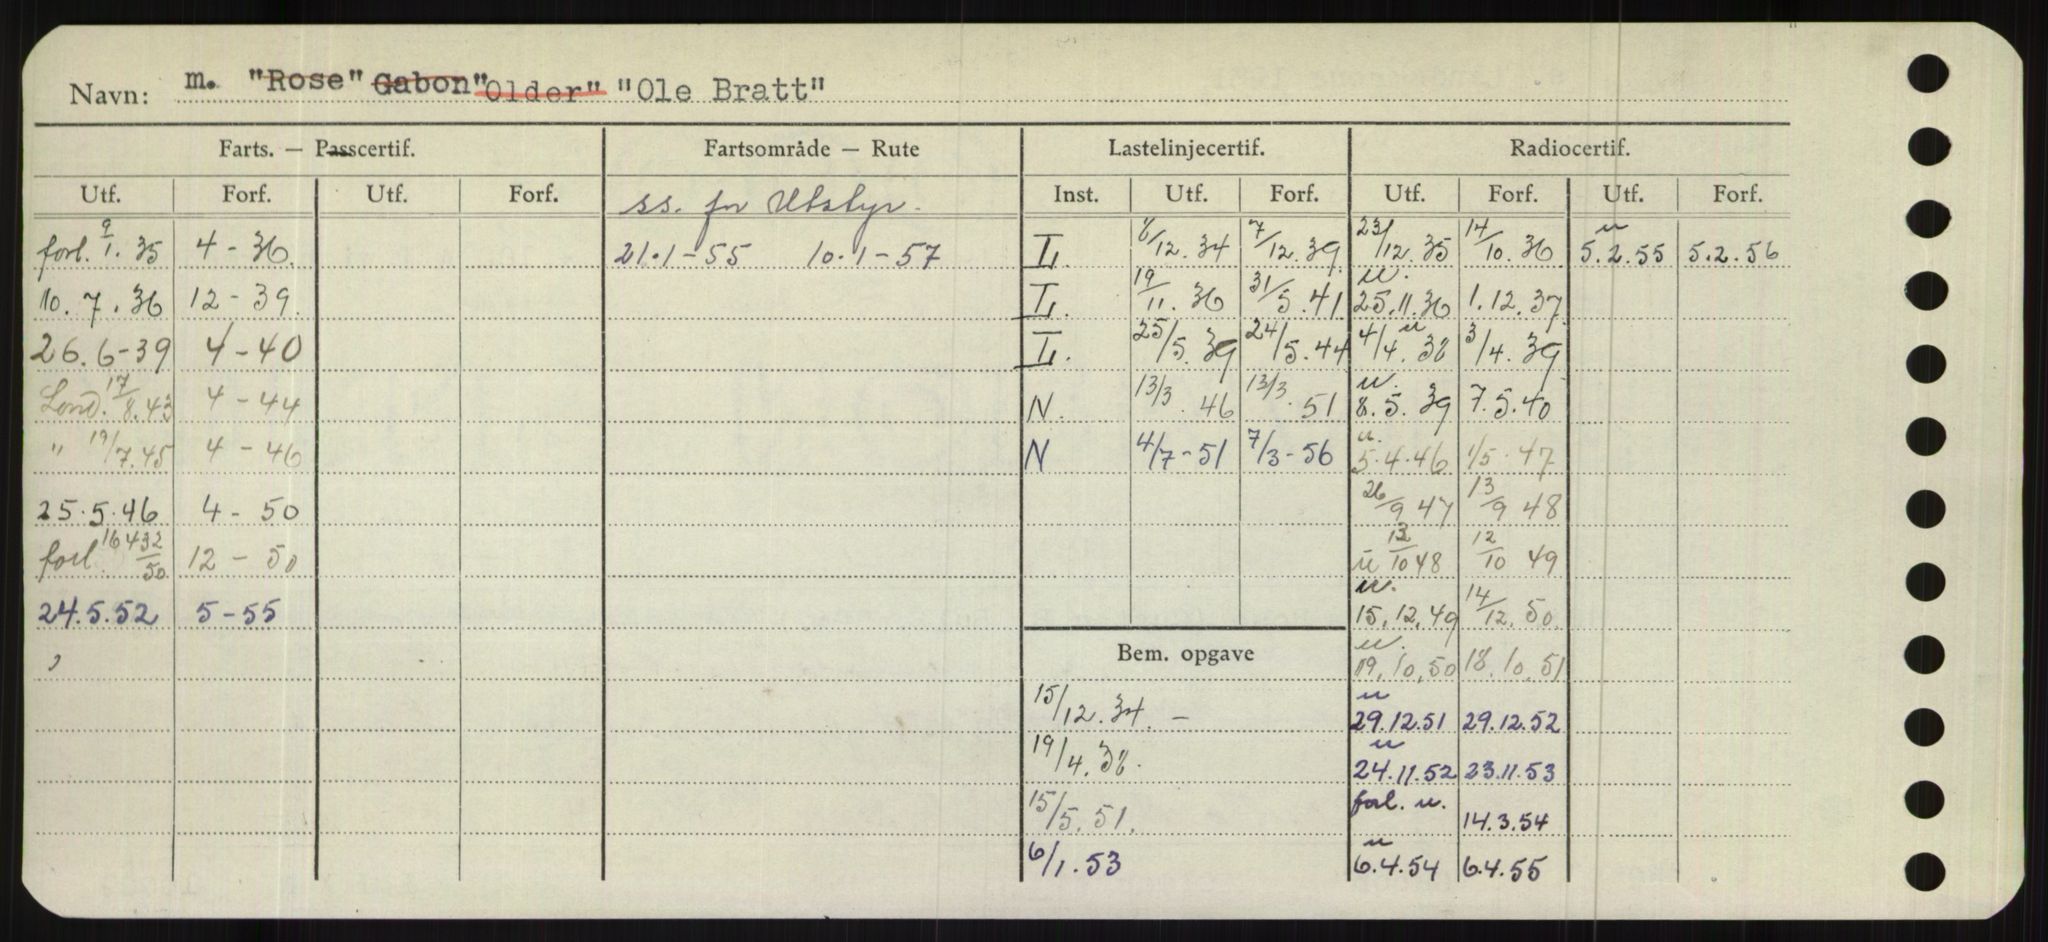 Navn: m. "Rose" Gabon "Older" "Ole Bratt"
Farts. — Passcertif. Fartsområde — Rute Lastelinjecertif. Radiocertif.
Utf. Forf. Utf. Forf. ss. for Utstyr. Inst. Utf. Forf. Utf. Forf. Utf. Forf.
forl. 9/1. 35 4 - 36. 21.1-55 10.1-57 L. 8/12. 34 7/12. 39 23/12. 35 14/10. 36 u 5.2.55 5.2.56
10. 7. 36 12 - 39. L. 19/11. 36 31/5. 41 u. 25.11.36 1.12.37
26.6-39 4-40 L. 25/5. 39 24/5. 44 4/4. u 38 3/4. 39
Lond. 17/8.43 4 - 44 N. 13/3. 46 13/3. 51 u. 8.5. 39 7.5.40
" 19/7.45 4 - 46 N 4/7-51 7/3-56 u. 5.4.46 1/5. 47
25.5.46 4 - 50 26/9 47 13/9 48
forl. 16432/50 12 - 50 u 13/10 48 12/10 49
24.5.52 5-55 u. 15.12.49 14/12. 50
Bem. opgave u. 19.10.50 18.10.51
15/12. 34. – u 29.12.51 29.12.52
19/4. 38. u 24.11.52 23.11.53
15/5. 51. forl. u. 14.3.54
6/1. 53 u 6.4.54 6.4.55